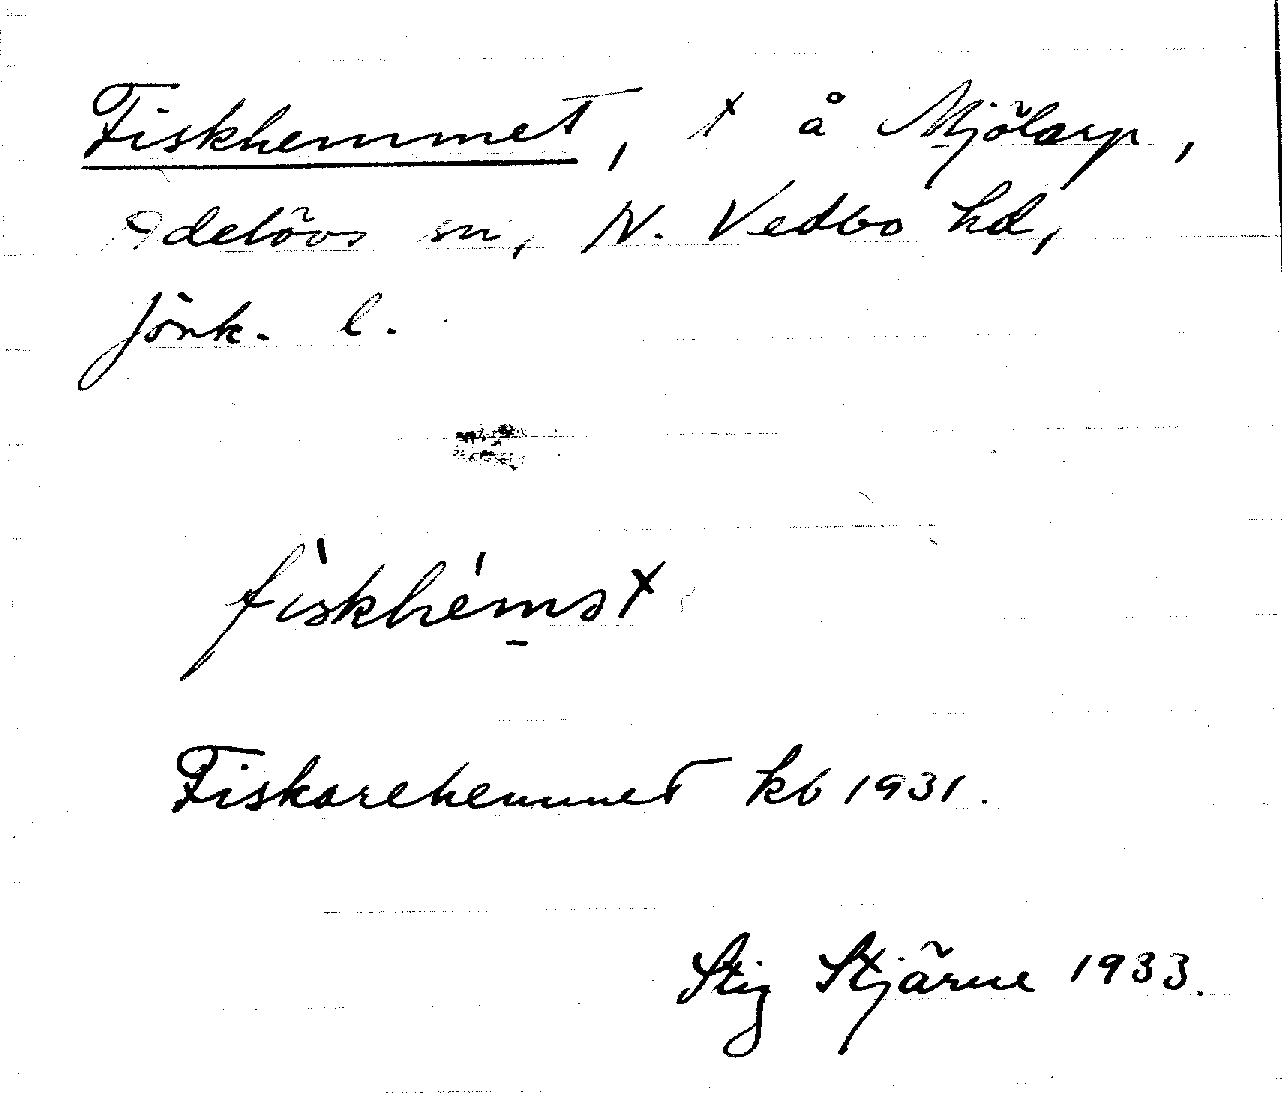 Fiskhemmet, t å Mjölarp,
Adelövs sn, N. Vedbo hd,
Jönk. l.
fìskhémət
Fiskarehemmet kb 1931.
Stig Stjärne 1933.